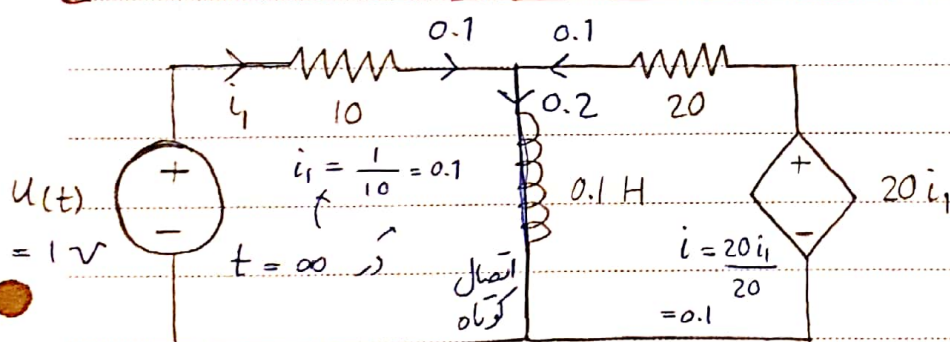 0.1
0.1
i₁
10
0.2
20
u(t)
= 1 v
+
−
i₁ = 1/10 = 0.1
در t = ∞
0.1 H
اتصال
کوتاه
+
−
20 i₁
i = 20 i₁/20
= 0.1